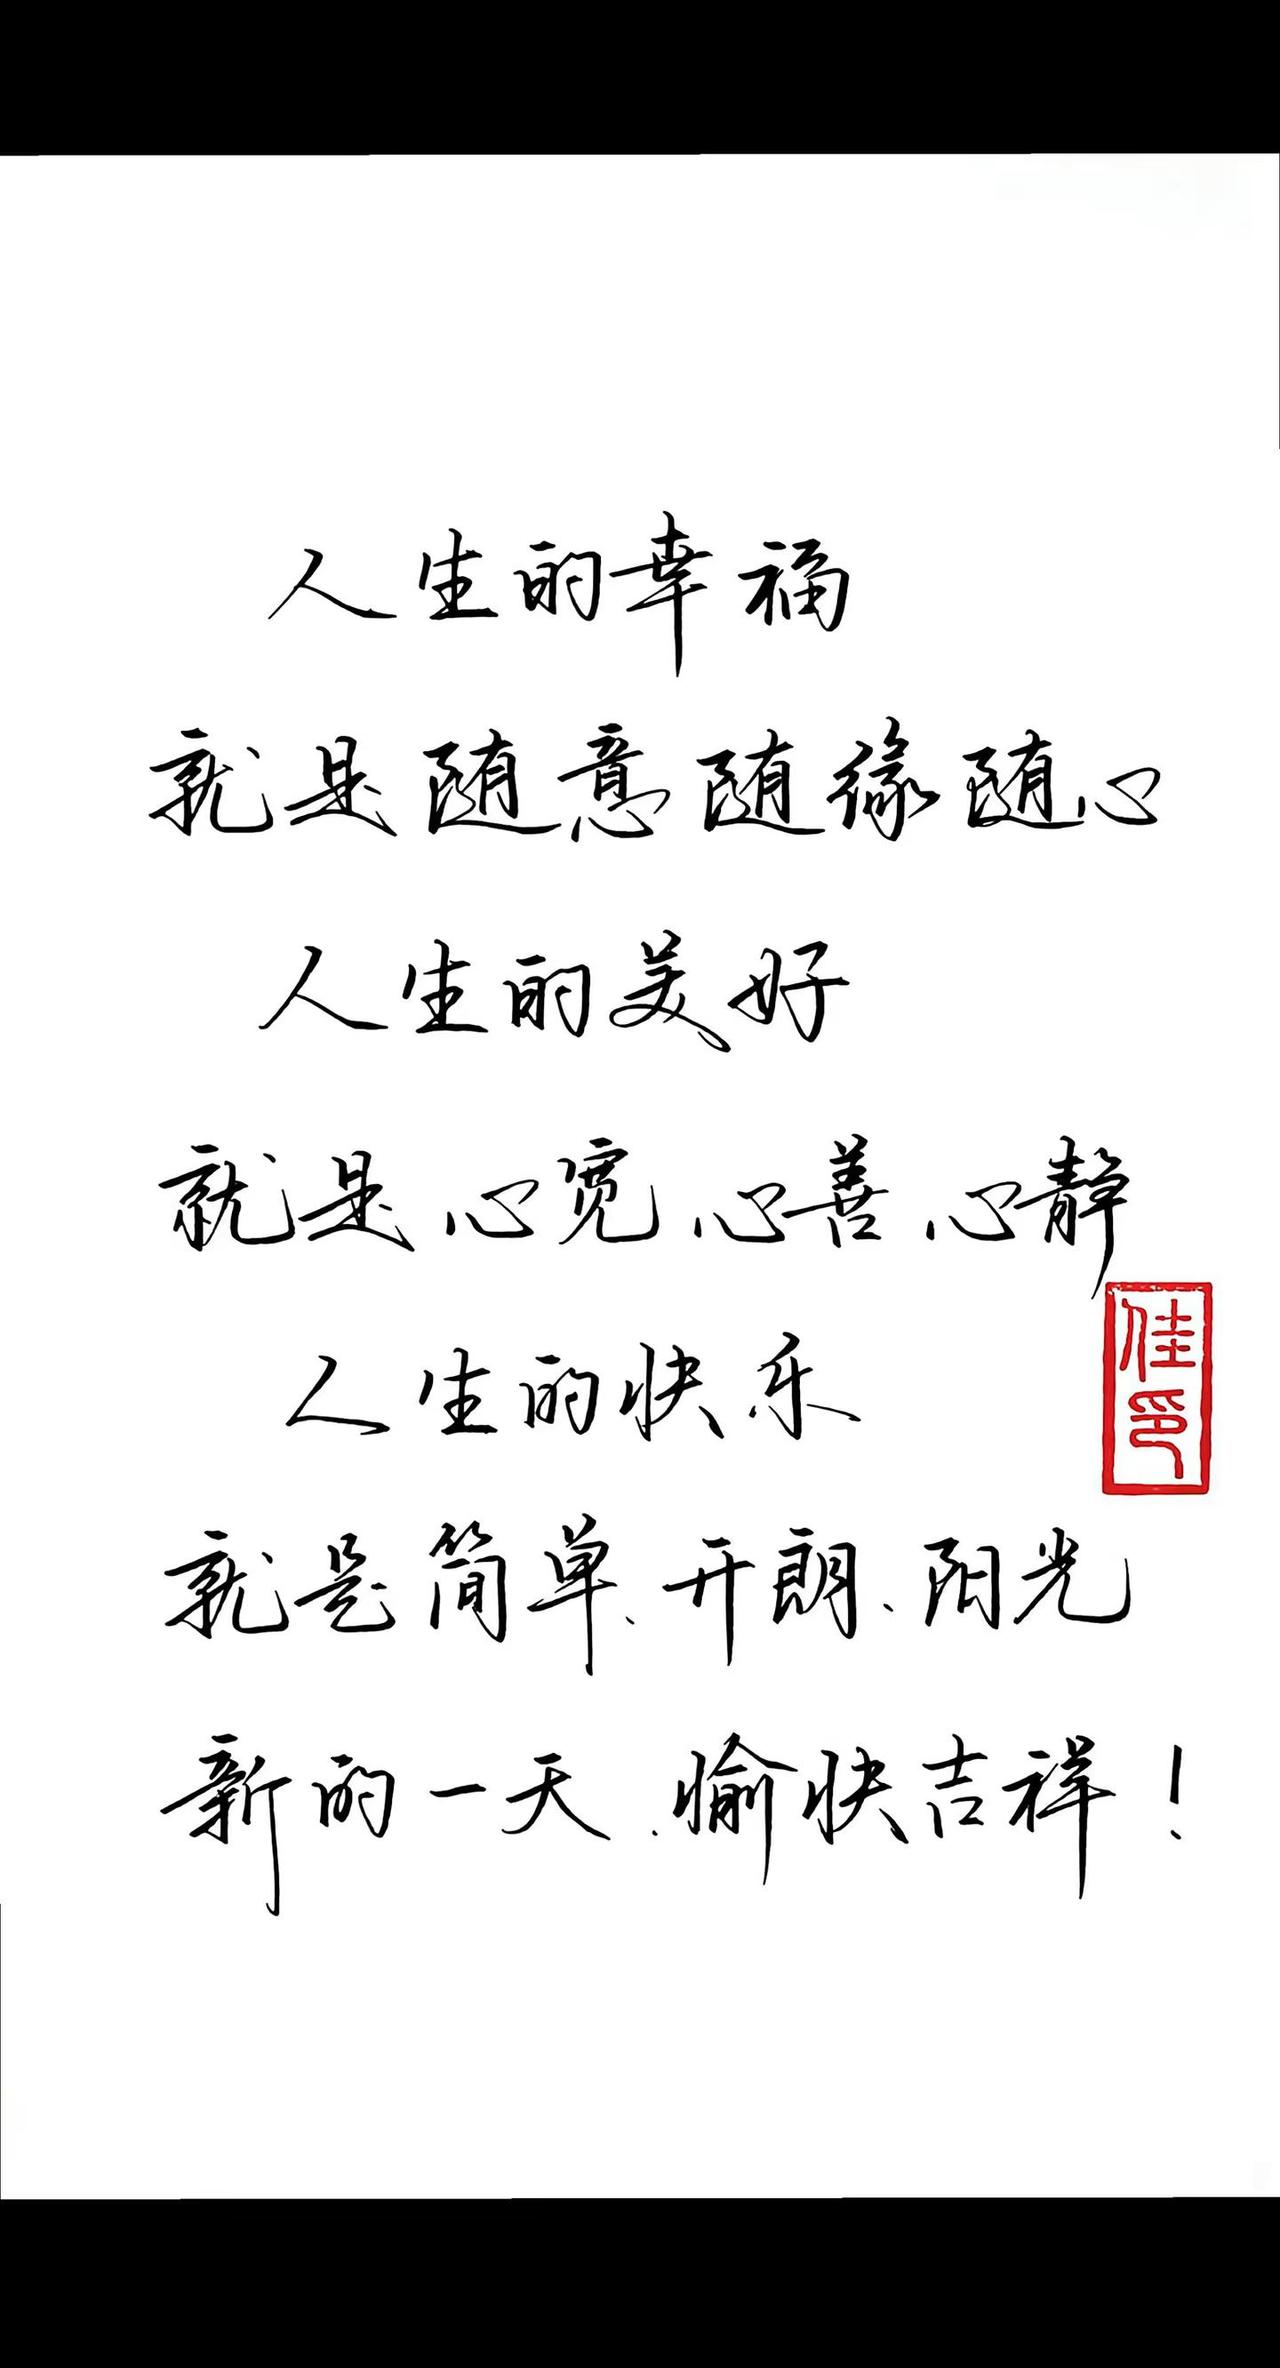 人生的幸福
就是随意随缘随心
人生的美好
就是心宽心善心静
人生的快乐
就是简单、开朗、阳光
新的一天、愉快吉祥！
佳印